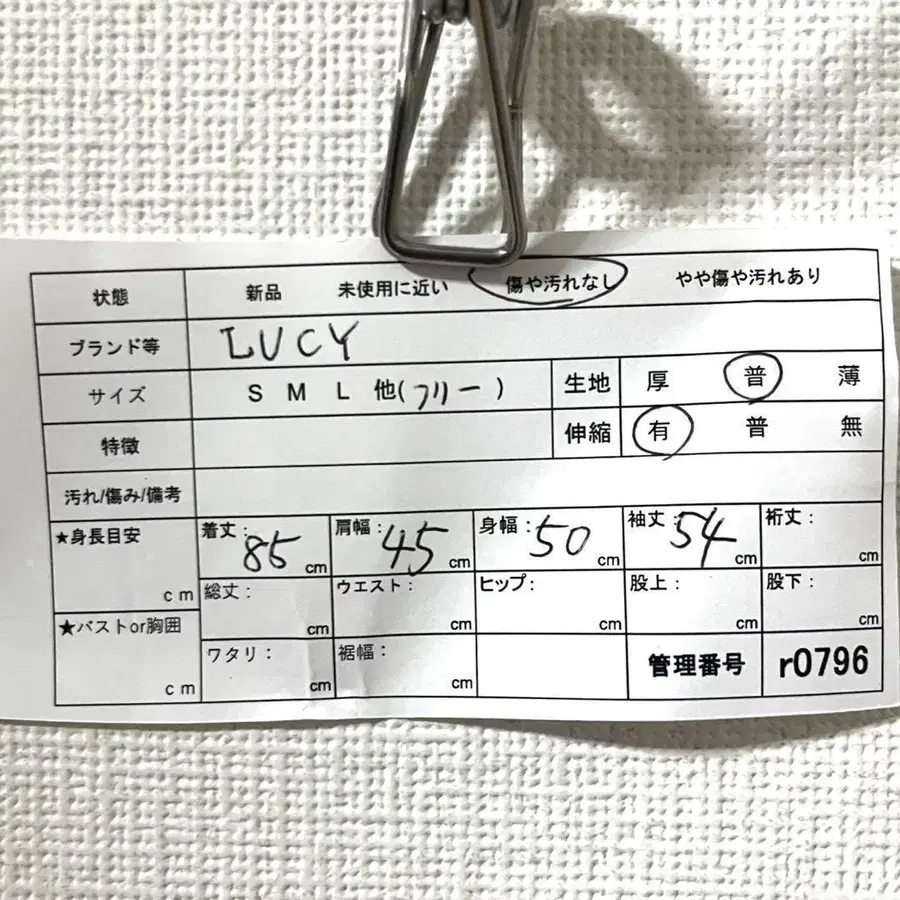 状態 新品 未使用に近い 傷や汚れなし やや傷や汚れあり
ブランド等 LUCY
サイズ S M L 他(フリー) 生地 厚 普 薄
特徴 伸縮 有 普 無
汚れ/傷み/備考
★身長目安 cm 着丈: 85 cm 肩幅: 45 cm 身幅: 50 cm 袖丈: 54 cm 裄丈: cm
総丈: cm ウエスト: cm ヒップ: cm 股上: cm 股下: cm
★バストor胸囲 cm ワタリ: cm 裾幅: cm 管理番号 r0796